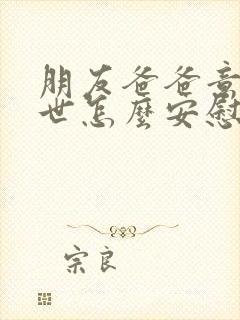 朋友爸爸意
世怎麼安慰
宗良